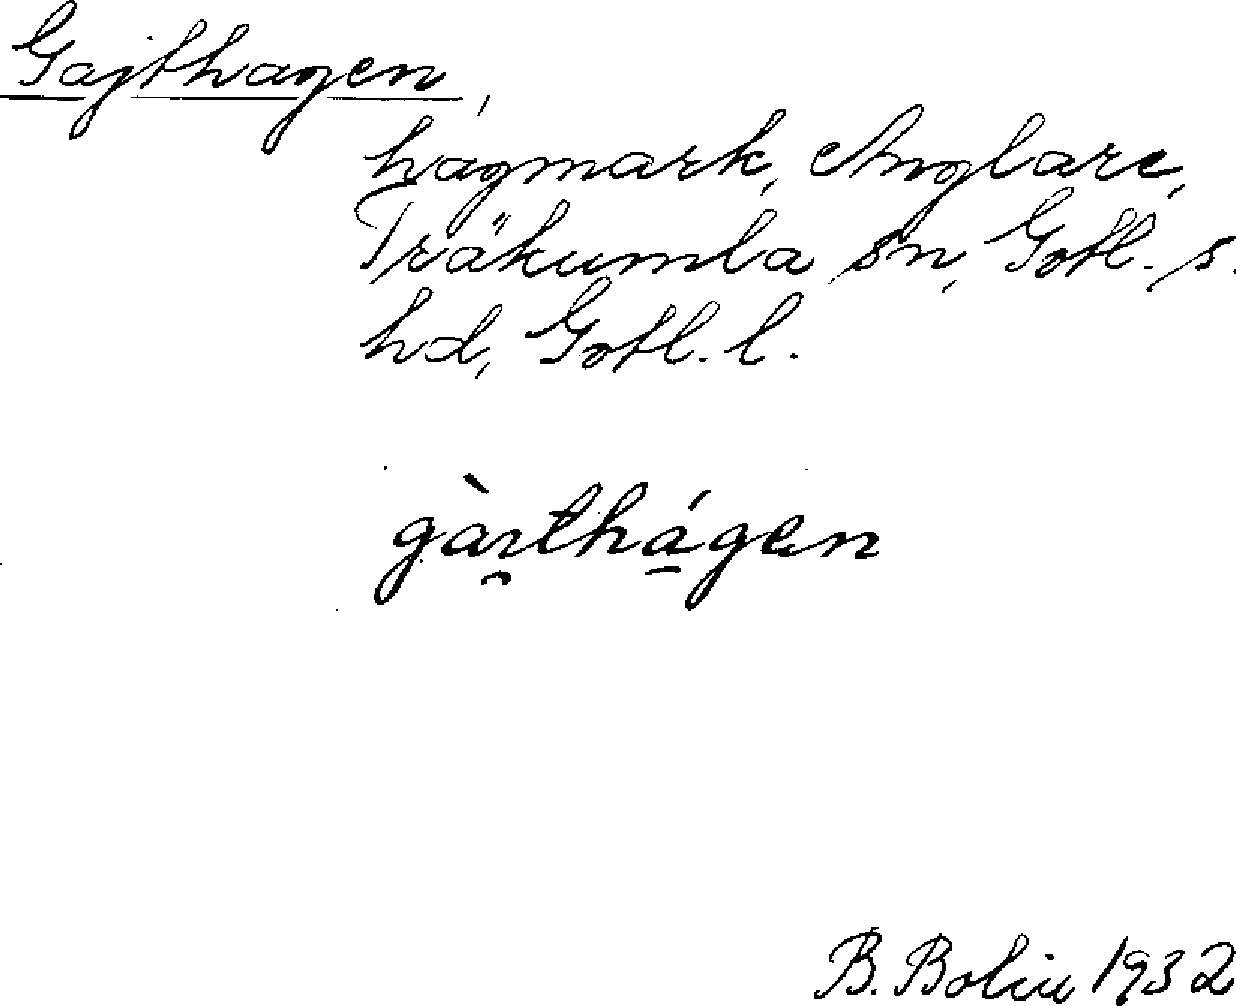 Gajthagen,
hagmark, Anglare,
Träkumla sn, Gotl. s.
hd, Gotl. l.
gàıthágen
B. Bolin 1932